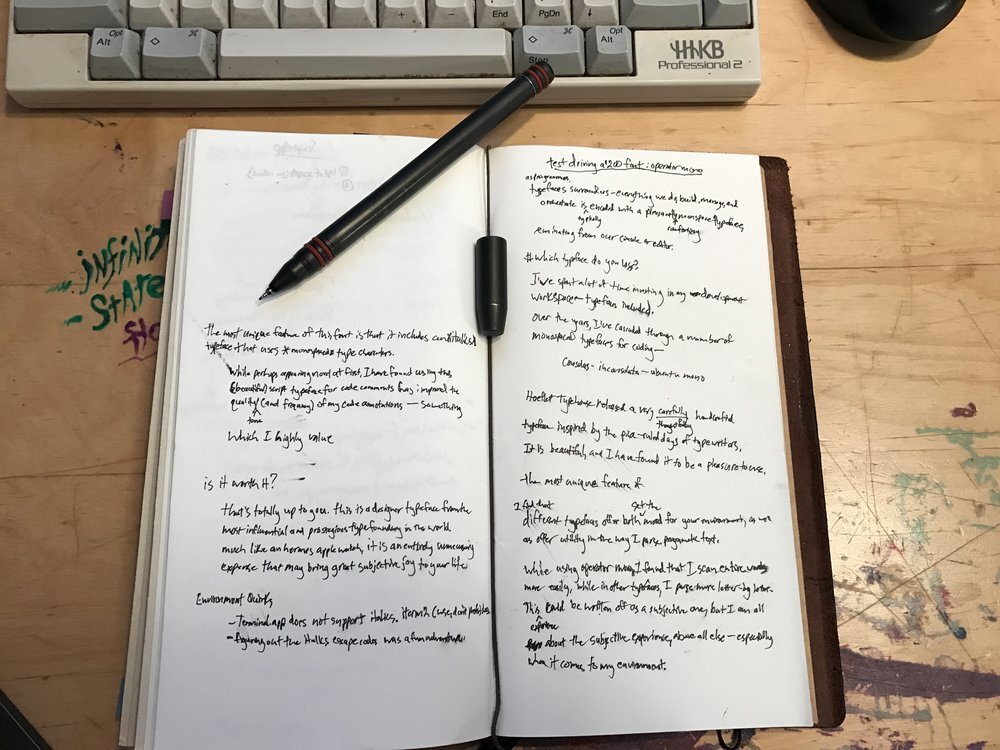 +
-
End
PgDn
↓
Alt
Opt
◇
⌘
◇
⌘
Stop
Alt
Opt
HHKB
Professional 2
infinit
State
Sto
The most unique feature of this font is that it includes an italicized
typeface that uses monospaced type characters.
While perhaps appearing novel at first, I have found using this
(beautiful) script typeface for code comments has improved the
quality (and frequency) of my code annotations — something
time
which I highly value
is it worth it?
That's totally up to you. This is a designer typeface from the
most influential and prestigious type foundry in the world
much like an hermes apple watch, it is an entirely unnecessary
expense that may bring great subjective joy to your life
Environment Quirks
- Terminal app does not support italics. iterm2 (use, does probably)
- figuring out the italics escape codes was a fun adventure
test driving a $200 font: operator mono
as programmers,
typefaces surround us - everything we do, build, manage, and
orchestrate is encoded with a monospace typeface,
typically
comforting
eminating from our console or editor.
# Which typeface do you use?
I've spent a lot of time investing in my development
workspace - typefaces included.
over the years, I've cascaded through a number of
monospaced typefaces for coding —
Consolas - inconsolata - ubuntu mono
Hoefler Typehouse released a very carefully handcrafted
thoughtfully
typeface inspired by the pica-ruled days of typewriters.
It is beautiful, and I have found it to be a pleasure to use.
the most unique feature of
I find that
Set the
different typefaces offer both mood for your environment, as well
as offer utility in the way I parse programatic text.
While using operator mono, I found that I scan entire words
more easily, while in other typefaces, I parse more letter-by-letter.
This could be written off as a subjective one, but I am all
experience
about the subjective experience, above all else — especially
when it comes to my environment.